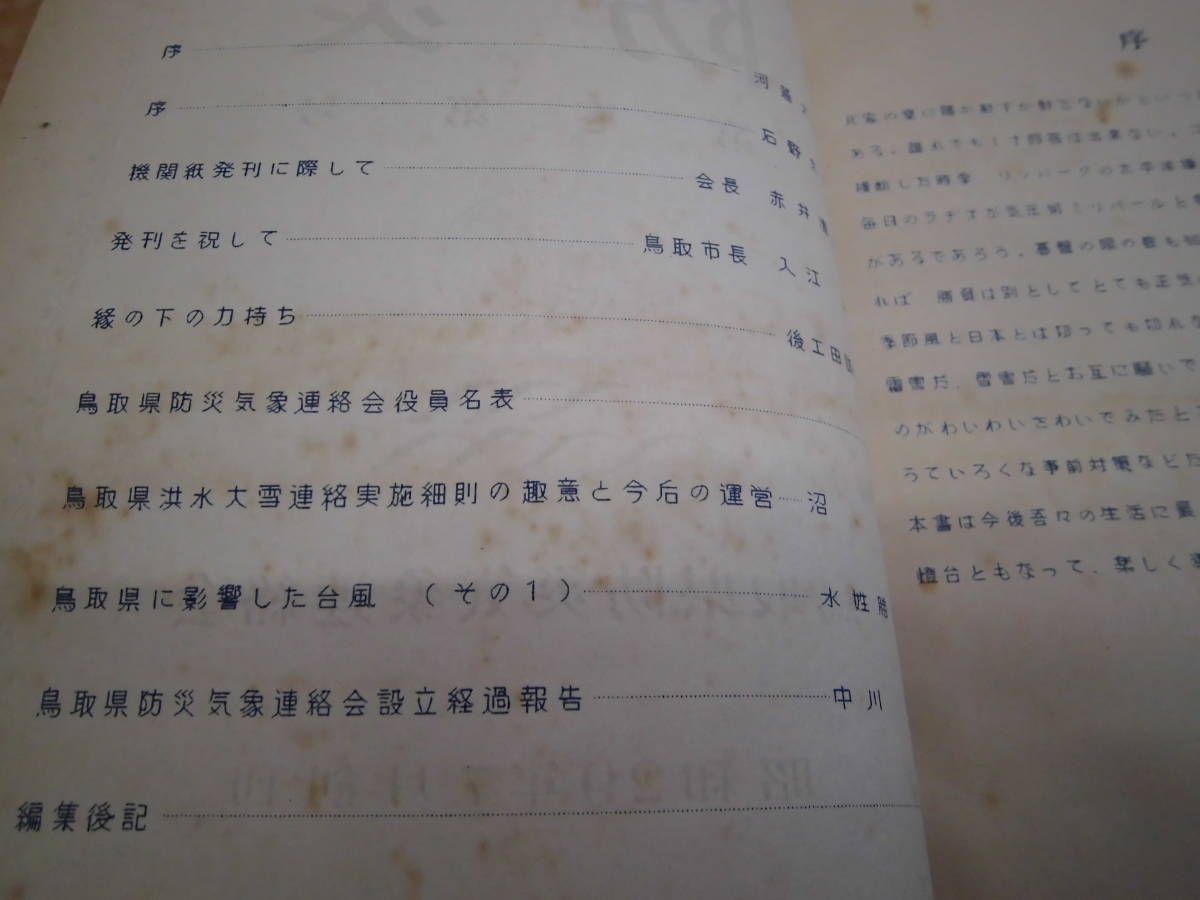 序
序 石野
機関紙発刊に際して 会長 赤井
発刊を祝して 鳥取市長 入江
縁の下の力持ち 後工田
鳥取県防災気象連絡会役員名表
鳥取県洪水大雪連絡実施細則の趣意と今后の運営 沼
鳥取県に影響した台風 (その1) 水姓
鳥取県防災気象連絡会設立経過報告 中川
編集後記
序
ある。誰れでも1寸即答は出来ない。
毎日のラヂオが気圧何ミリバールと
があるであろう。碁盤の眼の数も
れば 勝負は別としてとても正
季節風と日本とは切っても切れ
雷害だ、雪害だとお互に騒いで
のがわいわいさわいでみたと
うていろくな事前対策などた
本書は今後吾々の生活に
燈台ともなって、楽しく